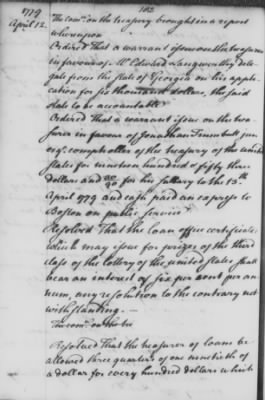 182
1779
April 12.
The comee. on the treasury brought in a report
whereupon
Ordered That a warrant issue on the treasurer
in favour of Mr Edward Langworthy dele-
gate from the state of Georgia on his appli-
cation for six thousand dollars, the said
state to be accountable
Ordered That a warrant issue on the trea-
surer in favour of Jonathan Trumbull jun
esqr. comptroller of the treasury of the united
states for nineteen hundred & fifty three
dollars and 30/90 for his sallary to the 13th
April 1779 and cash paid an express to
Boston on public service
Resolved That the loan office certificates
which may issue for prizes of the third
class of the lottery of the united states shall
bear an interest of six per cent per an-
num, any resolution to the contrary not
withstanding. —
The comee. on the tre
Resolved That the treasurer of loans be
allowed three quarters of one ninetieth of
a dollar for every hundred dollars which